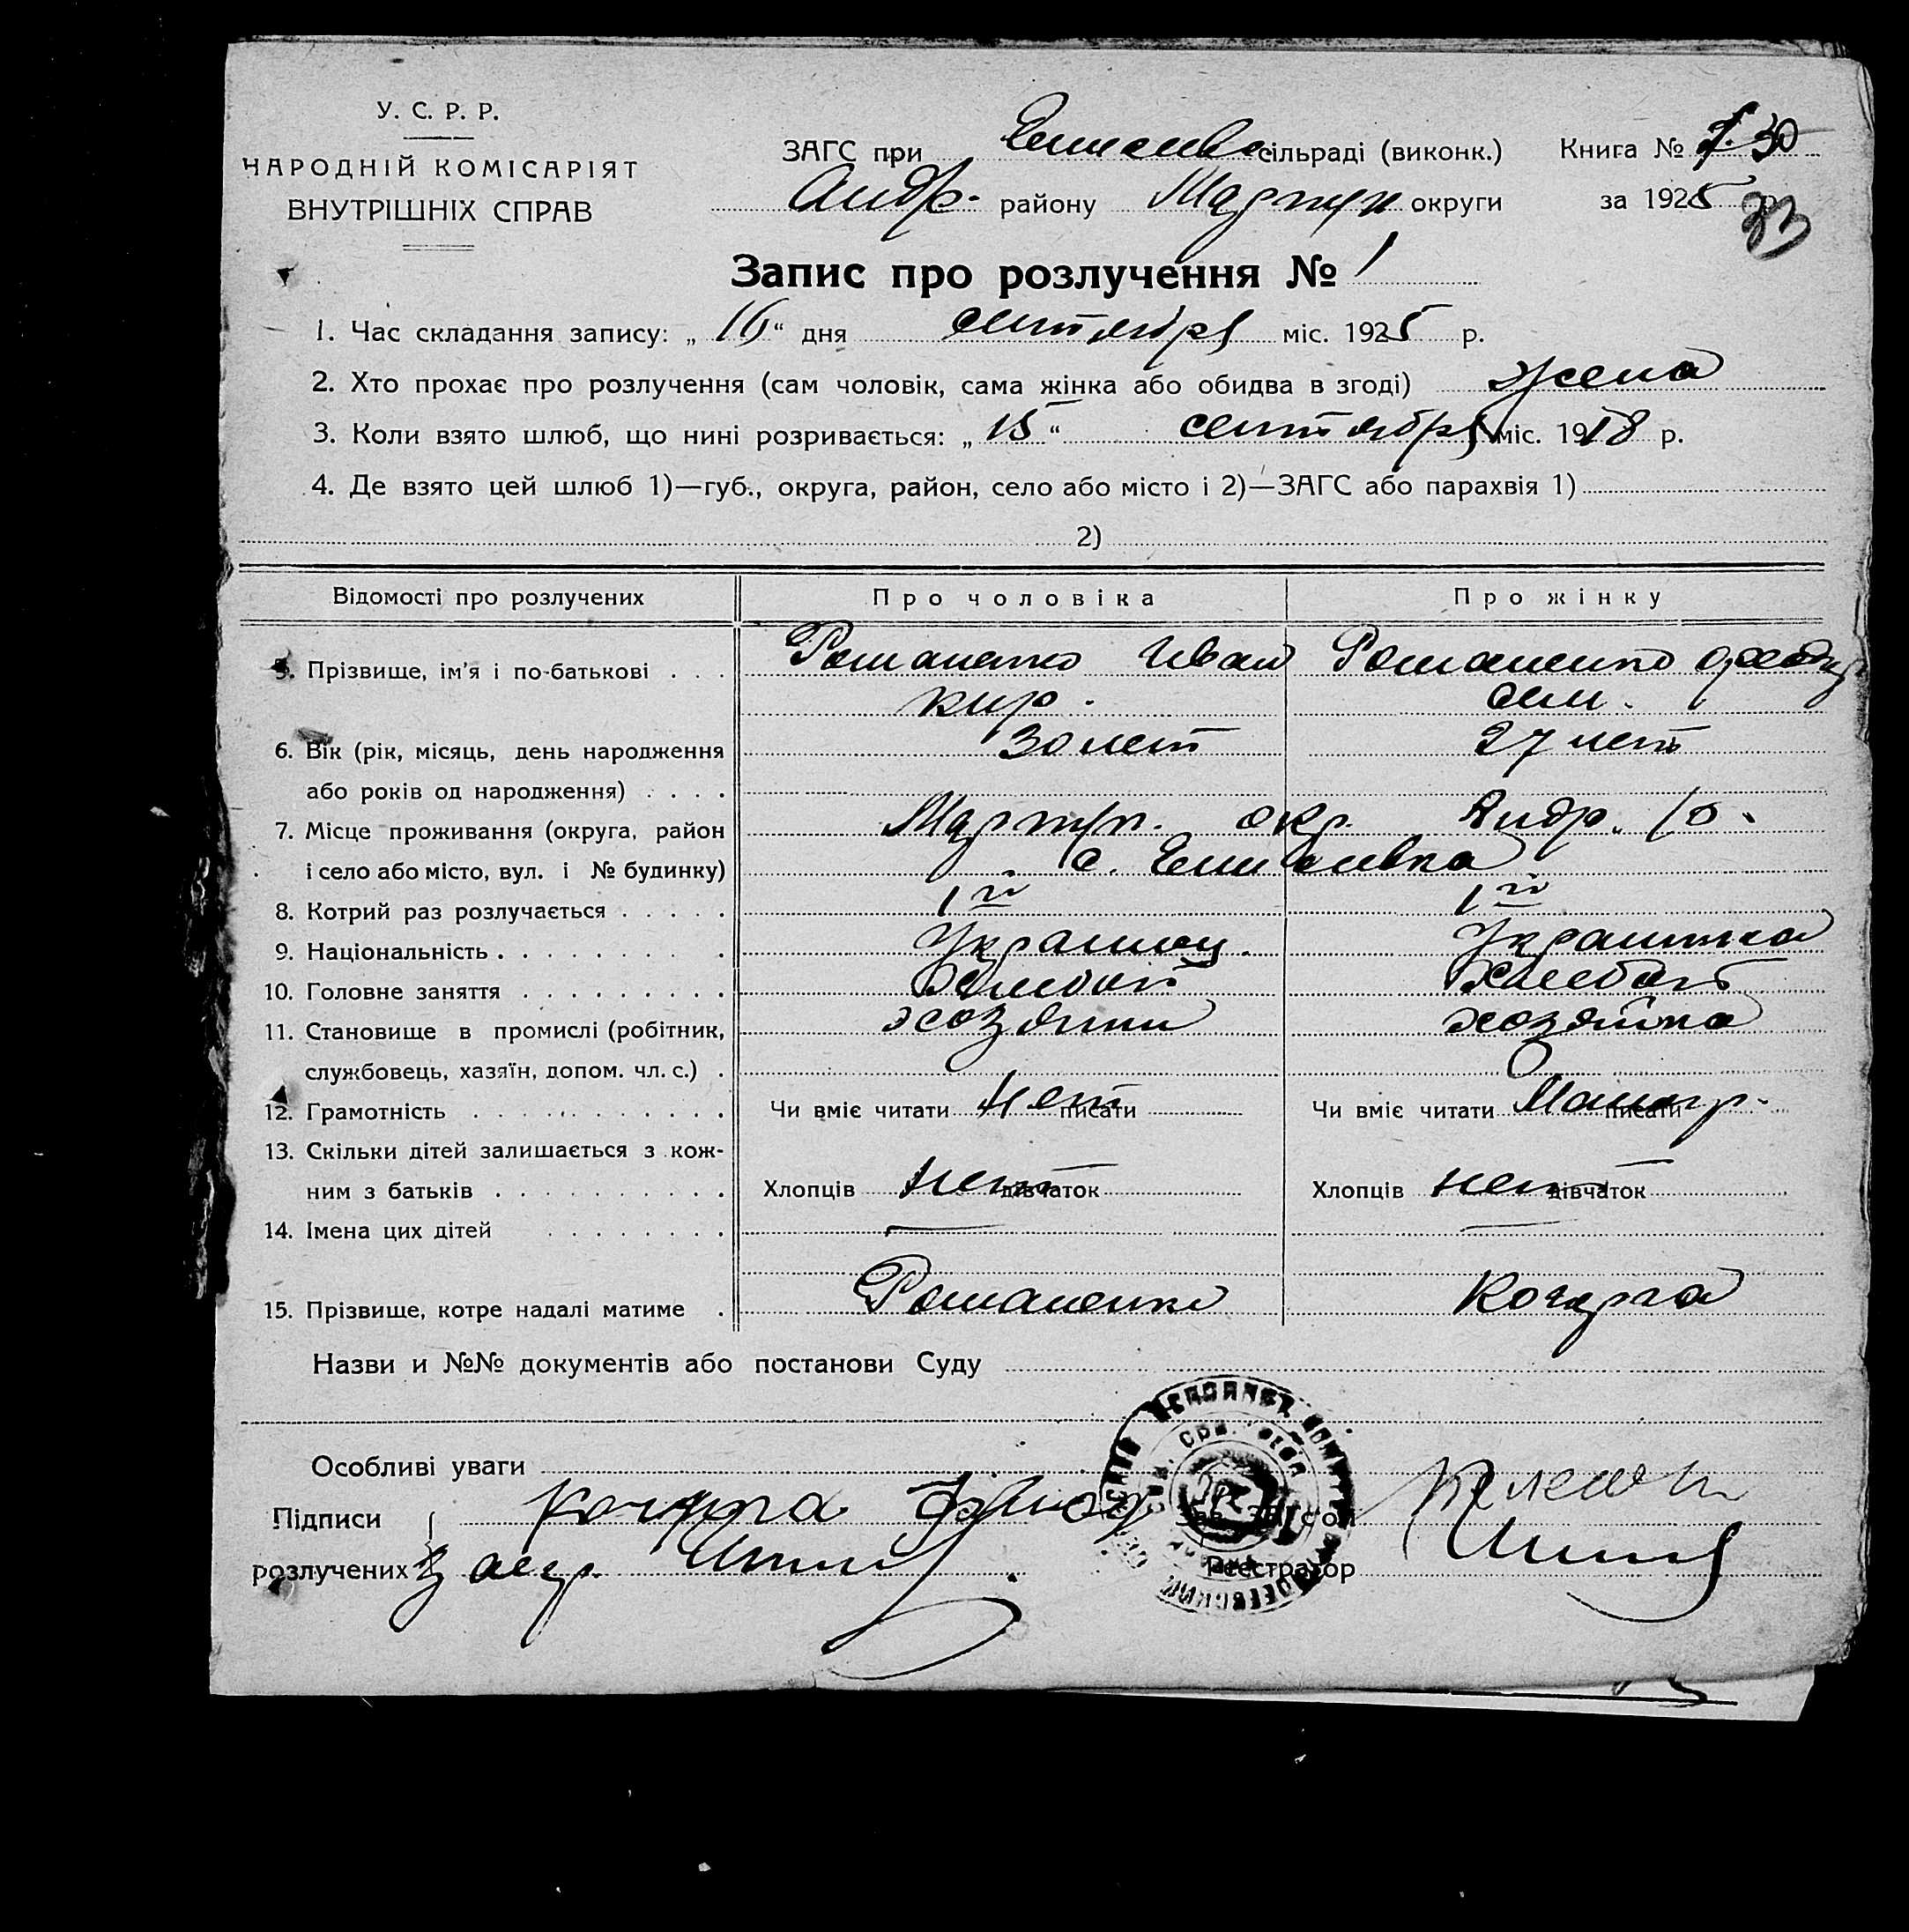 У. С. Р. Р.
НАРОДНІЙ КОМІСАРІЯТ
ВНУТРІШНІХ СПРАВ
ЗАГС при Елисеивс сільраді (виконк.) Книга № 30
Андр. району Мариуп округи за 1925 р.
33
Запис про розлучення № 1
1. Час складання запису: „16“ дня сентября міс. 1925 р.
2. Хто прохає про розлучення (сам чоловік, сама жінка або обидва в згоді) жена
3. Коли взято шлюб, що нині розривається: „15“ сентября міс. 1918 р.
4. Де взято цей шлюб 1)—губ., округа, район, село або місто і 2)—ЗАГС або парахвія 1)
2)
Відомості про розлучених Про чоловіка Про жінку
5. Прізвище, ім'я і по-батькові . . . Романенко Иван Романенко
кир. сем.
6. Вік (рік, місяць, день народження 30 лет 27 лет
або років од народження) . . . .
7. Місце проживання (округа, район Мариуп. окр. Андр. р.
і село або місто, вул. і № будинку) с. Елисеивка
8. Котрий раз розлучається . . . . . 1й 1й
9. Національність . . . . . . . . . Украинец. Украинка
10. Головне заняття . . . . . . . . . Хлебоп Хлебоп
11. Становище в промислі (робітник, хозяин хозяйка
службовець, хазяїн, допом. чл. с.) .
12. Грамотність . . . . . . . . . . . Чи вміє читати нет писати Чи вміє читати Малогр. писати
13. Скільки дітей залишається з кож-
ним з батьків . . . . . . . . . . Хлопців нет дівчаток Хлопців нет дівчаток
14. Імена цих дітей . . . . . . . .
15. Прізвище, котре надалі матиме . Романенко Кочерга
Назви и №№ документів або постанови Суду
Особливі уваги
Підписи Кочерга Зав. ЗАГС'ом
розлучених Реєстратор